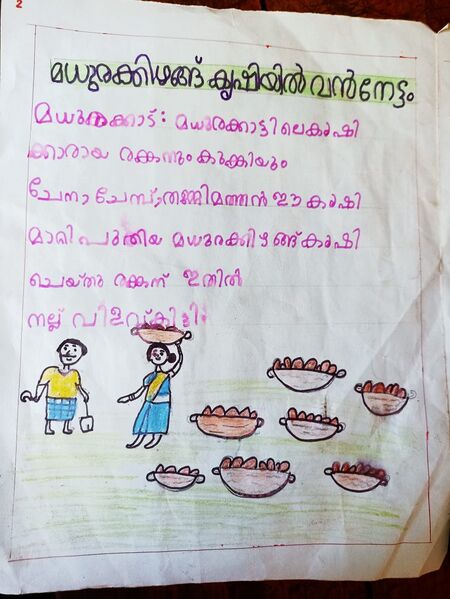 2
മധുരക്കിഴങ്ങ് കൃഷിയിൽ വൻനേട്ടം
മധുരക്കാട്: മധുരക്കാട്ടിലെ കൃഷി
ക്കാരായ രക്കനും കുക്കിയും
ചേന, ചേമ്പ്, തണ്ണിമത്തൻ ഈ കൃഷി
മാറ്റി പുതിയ മധുരക്കിഴങ്ങ് കൃഷി
ചെയ്തു രക്കന് ഇതിൽ
നല്ല് വിളവ് കിട്ടി.